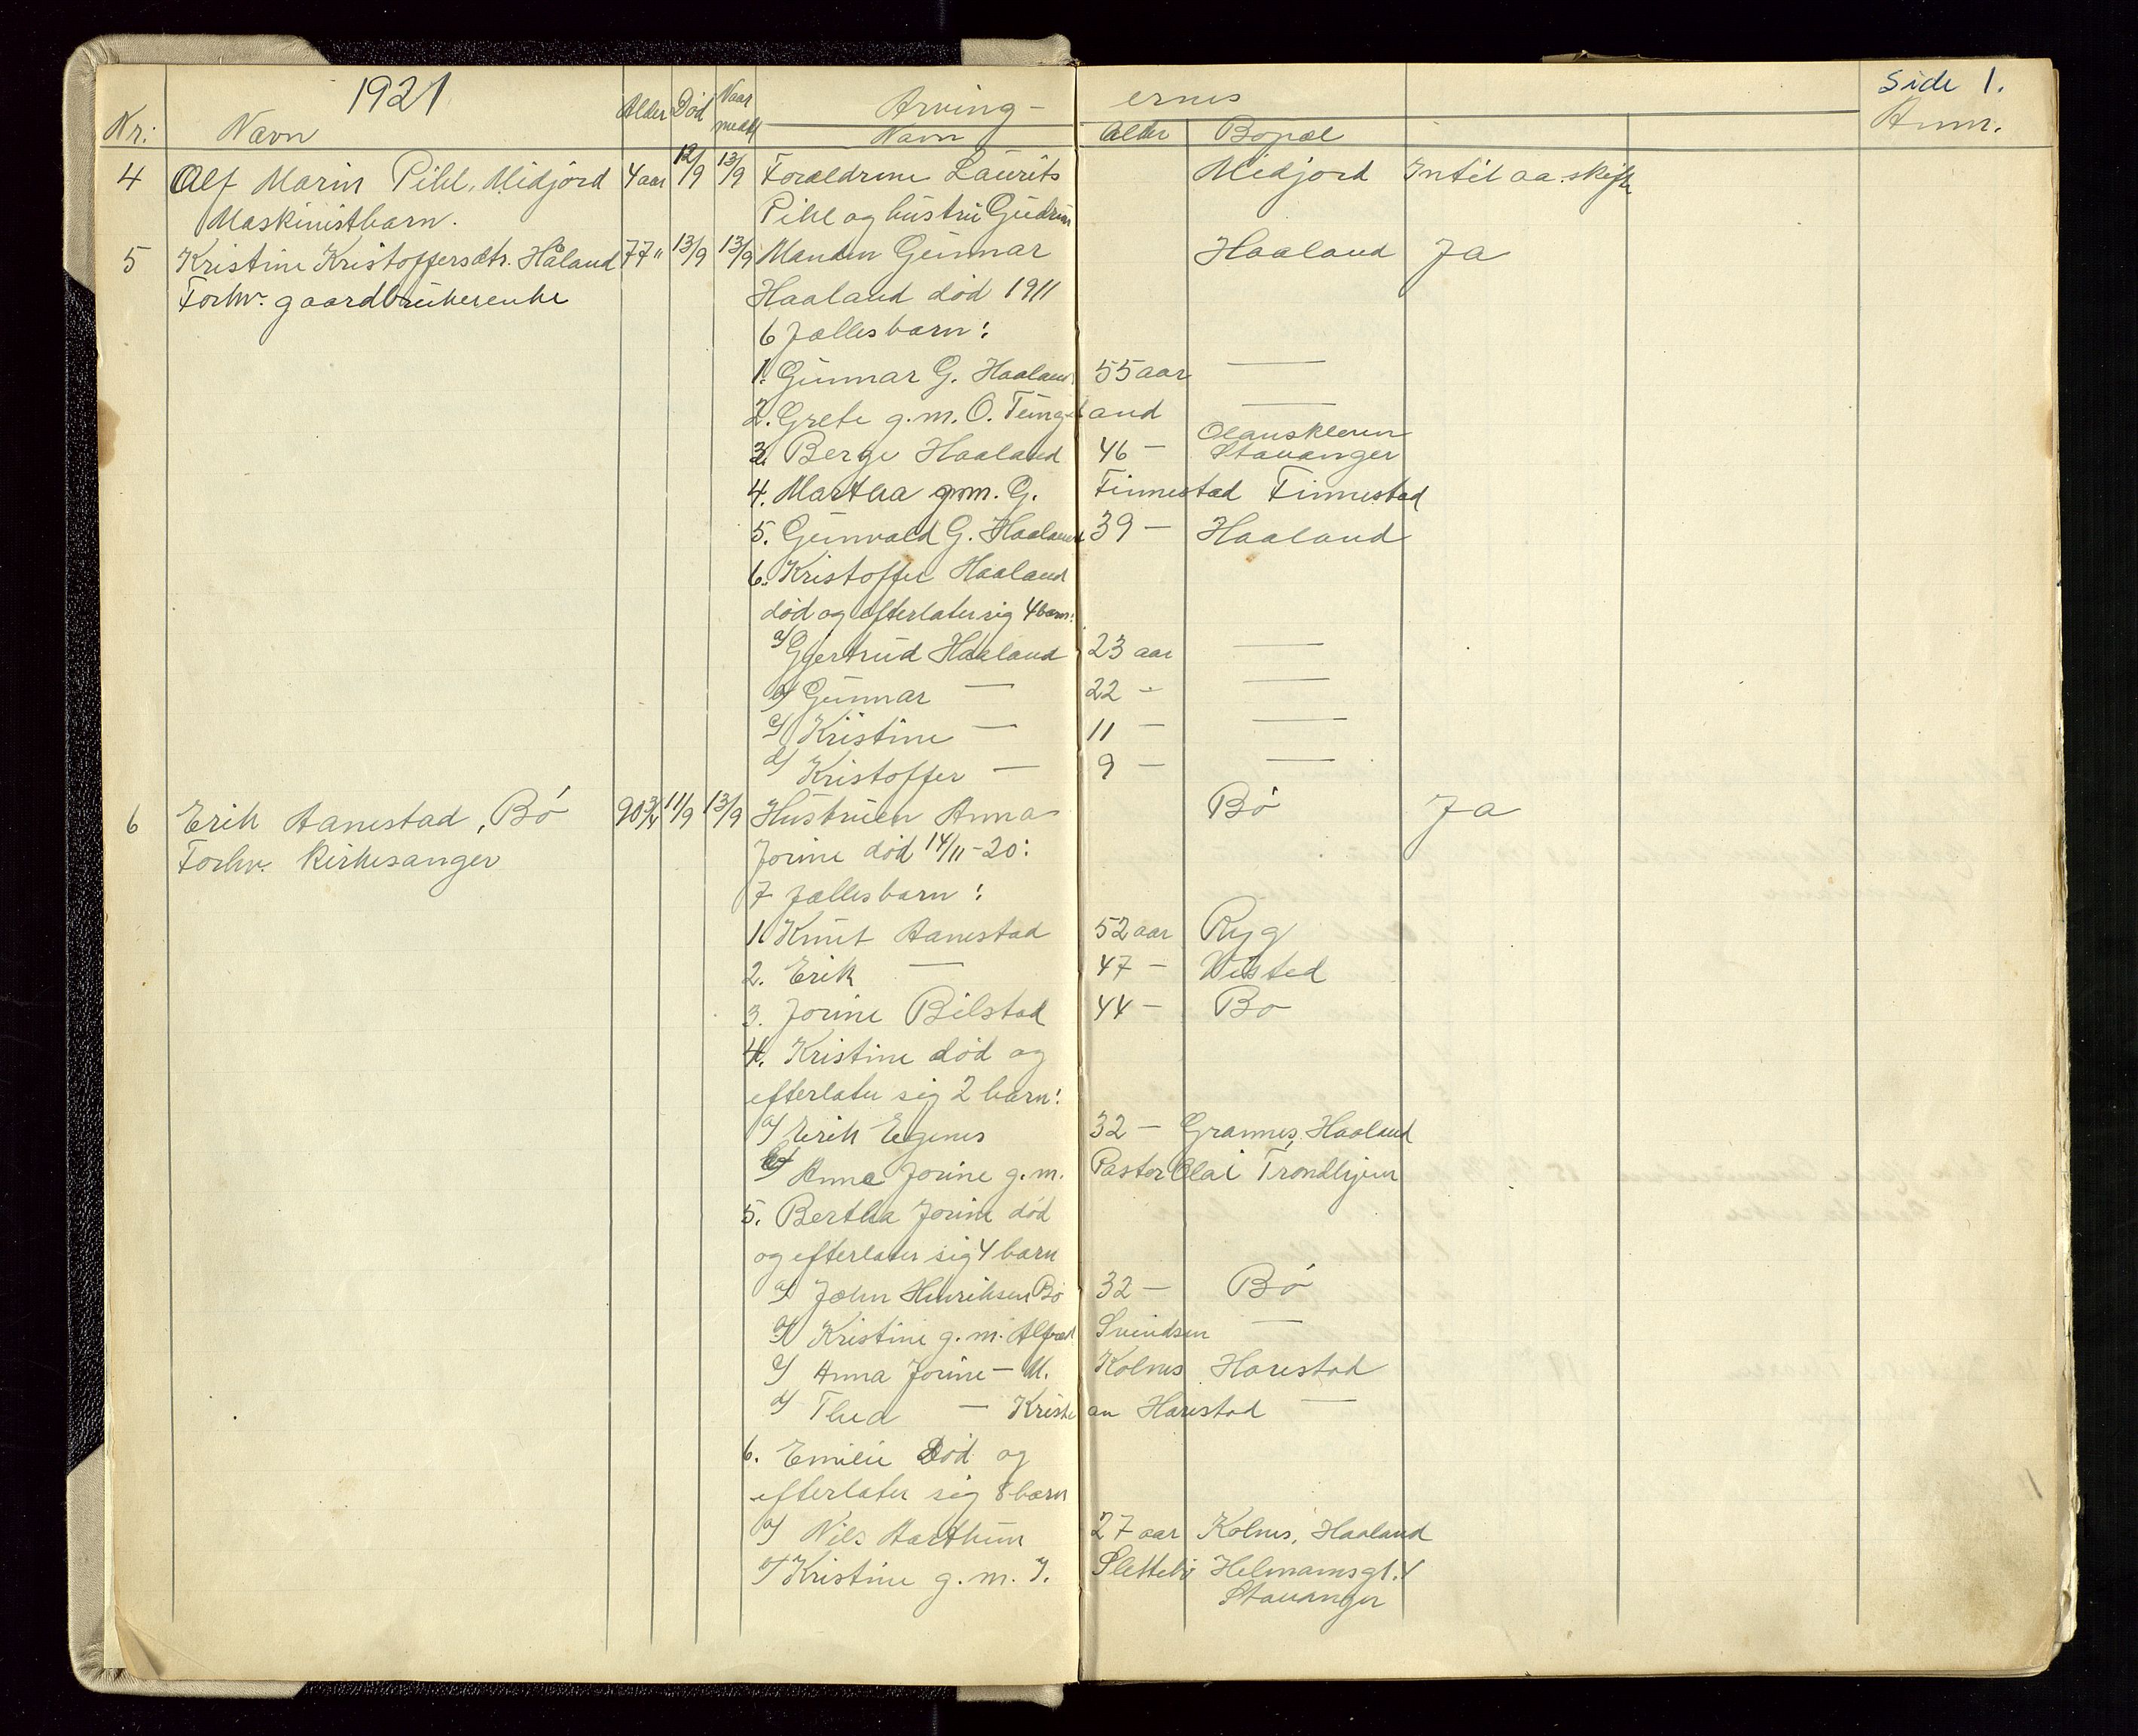 Side 1.
1921
Arving- ernes
Nr: Navn Alder Død Navn Alder Bopæl Anm.
4 Alf Marin Pihl, Midjord 4 aar 12/9 13/9 Forældrene Laurits Midjord Intil aa skifte
Maskinistbarn. Pihl og hustru Gudrun
5 Kristine Kristoffersdtr. Håland 77 " 13/9 13/9 Manden Gunnar Haaland Ja
Forhv. gaardbrukerenke Haaland død 1911
6 fællesbarn:
1. Gunnar G. Haaland 55 aar —
2. Grete g.m. O. Tungeland —
3. Berge Haaland 46 — Olauskleven Stavanger
4. Martha g.m. G. Finnestad Finnestad
5. Gunvald G. Haaland 39 — Haaland
6. Kristoffer Haaland
død og efterlater sig 4 barn:
a/ Gjertrud Haaland 23 aar —
b/ Gunnar — 22 — —
c/ Kristine — 11 — —
d/ Kristoffer — 9 — —
6 Erik Aanestad, Bø 90 3/4 11/9 13/9 Hustruen Anna Bø Ja
Forhv. Kirkesanger Jorine død 14/11-20:
7 fællesbarn:
1. Knut Aanestad 52 aar Ryg
2. Erik — 47 — Visted
3. Jorine Bilstad 44 — Bø
4. Kristine død og
efterlater sig 2 barn:
a/ Erik Egenes 32 — Grannes, Haaland
b/ Anna Jorine g.m. Pastor Olai Trondhjem
5. Bertha Jorine død
og efterlater sig 4 barn
a/ John Henriksen Bø 32 — Bø
b/ Kristine g.m. Alfred Svendsen —
c/ Anna Jorine — M. Kolnes Harestad
d/ Thea — Kristian Harestad —
6. Emilie Død og
efterlater sig 8 barn
a/ Nils Aarthun 27 aar Kolnes, Haaland
b/ Kristine g.m. I. Slettebø Helmansgt. 4
Stavanger